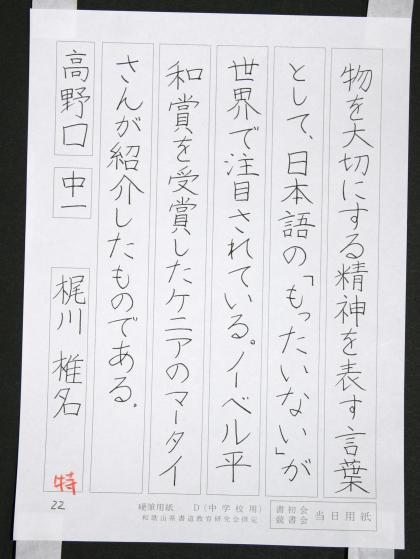 物を大切にする精神を表す言葉
として、日本語の「もったいない」が
世界で注目されている。ノーベル平
和賞を受賞したケニアのマータイ
さんが紹介したものである。
高野口 中一 梶川 椎名
特
22
硬筆用紙 D(中学校用)
和歌山県書道教育研究会検定
書初会
競書会 当日用紙